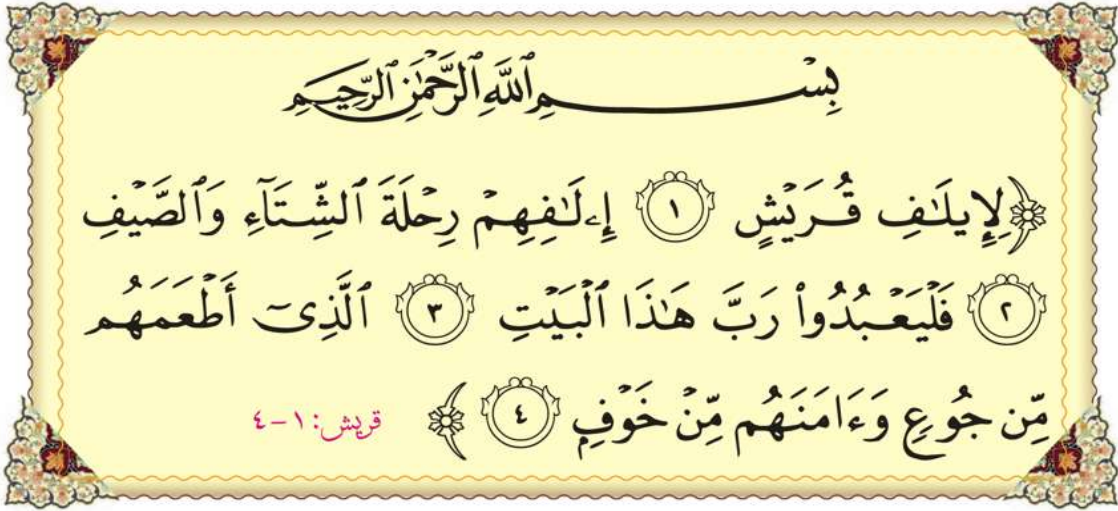 بِسْمِ ٱللَّهِ ٱلرَّحْمَٰنِ ٱلرَّحِيمِ
﴿لِإِيلَٰفِ قُرَيْشٍ ١ إِۦلَٰفِهِمْ رِحْلَةَ ٱلشِّتَآءِ وَٱلصَّيْفِ
٢ فَلْيَعْبُدُوا۟ رَبَّ هَٰذَا ٱلْبَيْتِ ٣ ٱلَّذِىٓ أَطْعَمَهُم
مِّن جُوعٍ وَءَامَنَهُم مِّنْ خَوْفٍۭ ٤ ﴾ قريش: ١-٤